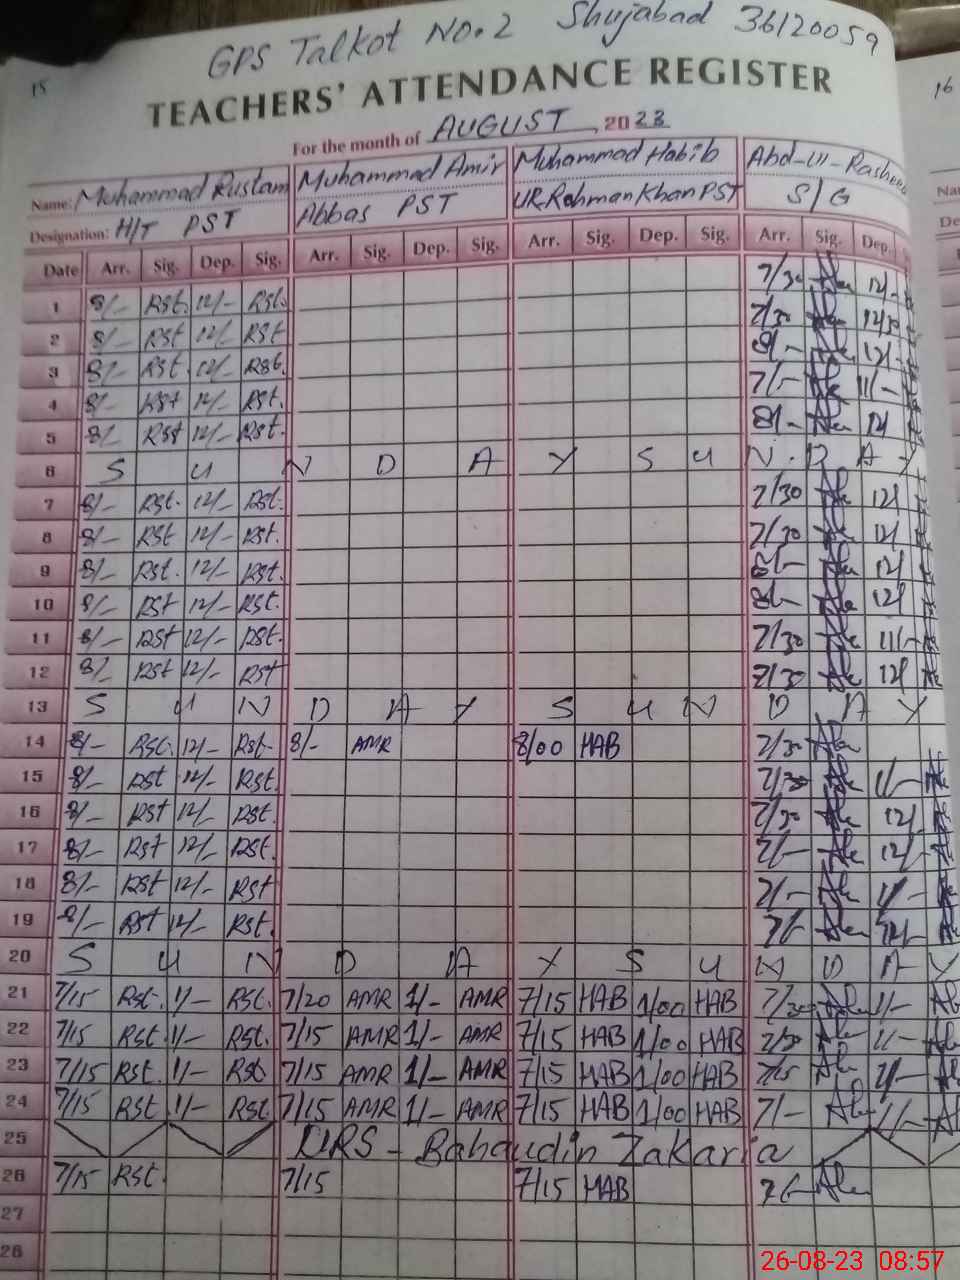 GPS Talkot No.2 Shujabad 36120059
15
16
TEACHERS' ATTENDANCE REGISTER
For the month of AUGUST, 2023
Name: Muhammad Rustam Muhammad Amir Muhammad Habib Abd-Ul-Rasheed
Designation: H/T PST Abbas PST UR-Rehman Khan PST S/G
Date Arr. Sig. Dep. Sig. Arr. Sig. Dep. Sig. Arr. Sig. Dep. Sig. Arr. Sig. Dep.
1 8/- Rst. 12/- Rst. 7/30 12/-
2 8/- Rst 12/- Rst 7/30 12/30
3 8/- Rst. 12/- Rst. 8/- 12/-
4 8/- Rst 12/- Rst. 7/- 11/-
5 8/- Rst 12/- Rst. 8/- 12/
6 S U N D A Y S U N D A Y
7 8/- Rst. 12/- Rst. 7/30 12/
8 8/- Rst 12/- Rst. 7/30 12/
9 8/- Rst. 12/- Rst. 8/- 12/
10 8/- Rst 12/- Rst. 8/- 12/
11 8/- Rst 12/- Rst. 7/30 11/-
12 8/- Rst 12/- Rst 7/30 12/
13 S U N D A Y S U N D A Y
14 8/- Rst. 12/- Rst. 8/- AMR 8/00 HAB 7/30
15 8/- Rst 12/- Rst. 7/30 11/-
16 8/- Rst 12/- Rst. 7/30 12/
17 8/- Rst 12/- Rst. 7/- 12/
18 8/- Rst 12/- Rst 7/- 11/-
19 8/- Rst 12/- Rst. 7/- 12/-
20 S U N D A Y S U N D A Y
21 7/15 Rst. 1/- Rst. 7/20 AMR 1/- AMR 7/15 HAB 1/00 HAB 7/30 1/-
22 7/15 Rst. 1/- Rst. 7/15 AMR 1/- AMR 7/15 HAB 1/00 HAB 7/30 1/-
23 7/15 Rst. 1/- Rst 7/15 AMR 1/- AMR 7/15 HAB 1/00 HAB 7/15 1/-
24 7/15 Rst 1/- Rst. 7/15 AMR 1/- AMR 7/15 HAB 1/00 HAB 7/- 1/-
25 URS - Bahaudin Zakaria
26 7/15 Rst. 7/15 7/15 HAB 7/-
27
28
26-08-23 08:57